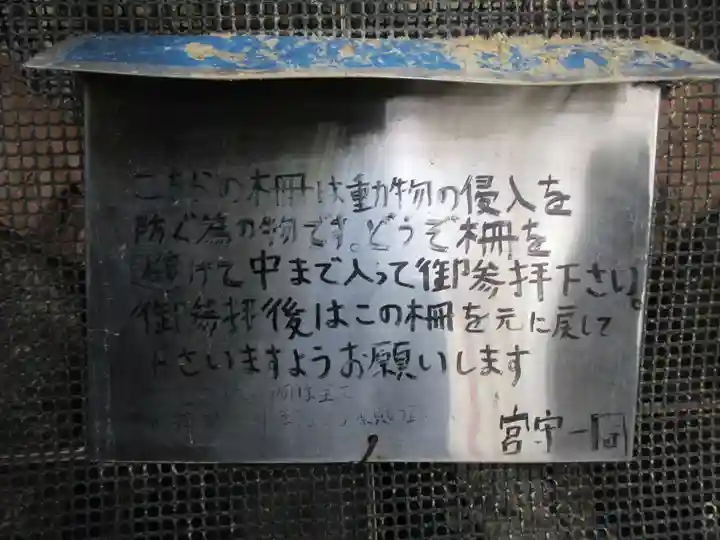 こちらの柵は動物の侵入を
防ぐ為の物です。どうぞ柵を
避けて中まで入って御参拝下さい。
御参拝後はこの柵を元に戻して
下さいますようお願いします
宮守一同